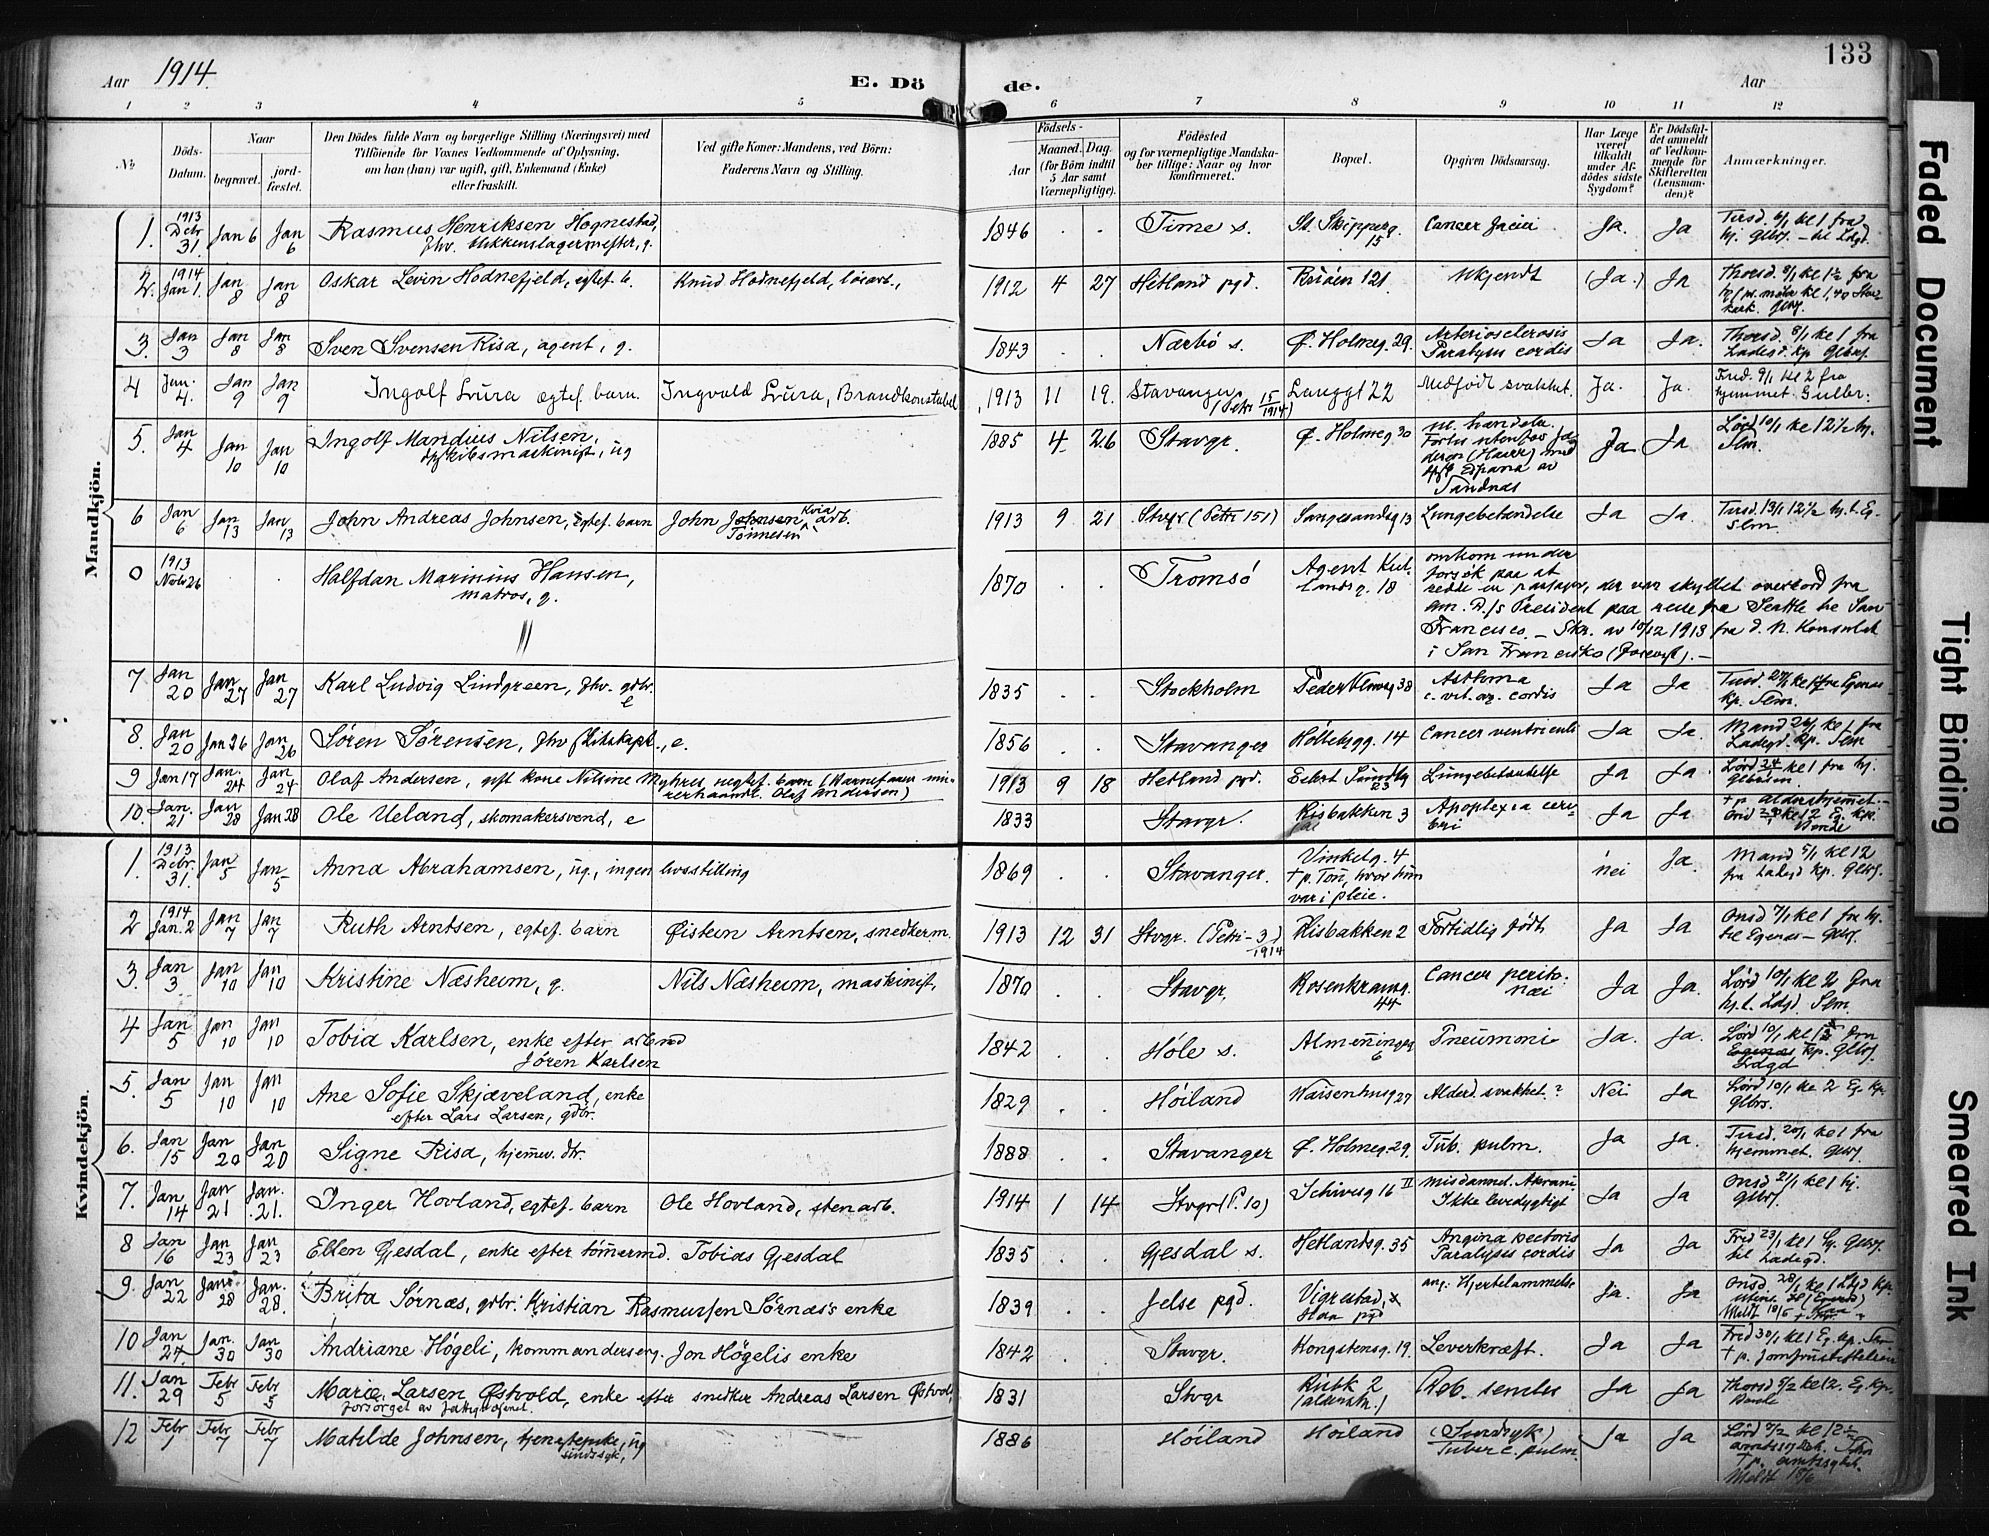 133
Aar 1914. E. Dö de. Aar
1 2 3 4 5 6 7 8 9 10 11 12
No.
Döds-Datum.
Naar
begravet.
jord-fæstet.
Den Dödes fulde Navn og borgerlige Stilling (Næringsvei) med
Tilföiende for Voxnes Vedkommende af Oplysning,
om han (hun) var ugift, gift, Enkemand (Enke)
eller fraskilt.
Ved gifte Koner: Mandens, ved Börn:
Faderens Navn og Stilling.
Födsels-
Aar
Maaned. Dag.
(for Börn indtil
5 Aar samt
Værnepligtige).
Födested
og for værnepligtige Mandska-
ber tillige: Naar og hvor
konfirmeret.
Bopæl.
Opgiven Dödsaarsag.
Har Læge
været
tilkaldt
under Af-
dödes sidste
Sygdom?
Er Dödsfal-
det anmeldt
af Vedkom-
mende for
Skifteretten
(Lensman-
den)?
Anmærkninger.
Mandkjön.
1. 1913 Decbr 31. Jan 6 Jan 6 Rasmus Henriksen Hognestad, fhv. blikkenslagermester, g. 1846 . . Time s. St. Skipperg. 15 Cancer faciei Ja. Ja Tirsd. 6/1 kl 1 fra hj. Glbsj. – til Ldgd.
2. 1914 Jan 1. Jan 8 Jan 8 Oskar Levin Hodnefjeld, egtef. b. Knud Hodnefjeld, løsarb., 1912 4 27 Hetland pgd. Buöen 121 Ukjendt (Ja.) Ja Thorsd. 8/1 kl 1½ fra
3. Jan 3 Jan 8 Jan 8 Sven Svensen Risa, agent, g. 1843 . . Nærbö s. Ø. Holmeg. 29. Arteriosclerosis Paralysis cordis Ja Ja. Thorsd. 8/1 kl 1 fra Ladegd. kp Glbsj.
4 Jan. 4. Jan 9 Jan 9 Ingolf Lura egtef. barn. Ingvald Lura, Brandkonstabel 1913 11 19. Stavanger (Petri 15/1914) Langgt 22 Medfödt svakhet. Ja. Ja. Fred. 9/1 kl 2 fra hjemmet. Gullbr.
5. Jan 4 Jan 10 Jan 10 Ingolf Mandius Nilsen, dpskibsmaskinist, ug 1885 4 26 Stavgr. Ø. Holmeg 30 Ja Ja Lørd 10/1 kl 12½ hj. Slm.
6 Jan 6 Jan 13 Jan 13 John Andreas Johnsen, egtef. barn John Johnsen Tönnesen Kvia arb. 1913 9 21 Stvgr (Petri 151) Sangesandsg 13 Lungebetændelse Ja Ja. Tirsd. 13/1 12½ hj. t. Eg. Slm
0 1913 Novbr 26 . . Halfdan Marinius Hansen, matros, g. 1870 . . Tromsö Agent Kiellandsg. 18 omkom under forsök paa at redde en passager, der var skyllet overbord fra am. D/S President paa reise fra Seattle til San Francisco. – Skr. av 10/12 1913 fra d. n. Konsulat i San Francisko (forevist). –
7 Jan 20 Jan 27 Jan 27 Karl Ludvig Lindgreen, fhv. gdbr. e 1835 . . Stockholm Peder Klowsg 38 Asthma c. vit. org. cordis Ja Ja Tirsd. 27/1 kl 1 fra Egenes kp. Slm.
8. Jan 20 Jan 26 Jan 26 Søren Sørensen, fhv. skibskapt., e. 1856 . . Stavanger Höllebgg. 14 Cancer ventriculi Ja Ja. Mand 26/1 kl 1 fra Ladegd. Kp. Slm
9 Jan 17 Jan. 24 Jan 24 Olaf Andersen, gift kone Nilsine Myhres uegtef. barn (Barnefaren murerhaandl. Olaf Andersen) 1913 9 18 Hetland pgd. Eilert Sundtsg 23 Lungebetændelse Ja Ja Lørd 24/1 kl 1 fra hj.
10. Jan. 21 Jan 28 Jan 28 Ole Ueland, skomakersvend, e 1833 Stavgr. Risbakken 3 Apoplexia cerebri Ja Ja †p. Aldershjemmet. – Ond 28/1 kl 12 Eg. Kp. Bende
Kvindekjön.
1. 1913 Decbr. 31. Jan 5 Jan 5 Anna Abrahamsen, ug., ingen livsstilling 1869 . . Stavanger. Vinkelg. 4 †p. Tou, hvor hun var i pleie. nei Ja. Mand 5/1 kl 12 fra Ladegd kp. Glbsj.
2 1914 Jan. 2 Jan 7 Jan 7 Ruth Arntsen, egtef. barn Øistein Arntsen, snedkerm. 1913 12 31 Stvgr. (Petri – 3/1914) Risbakken 2 Fortidlig født Ja Ja Onsd 7/1 kl 1 fra hj. til Egenes – Glbsj.
3. Jan 3 Jan 10 Jan 10 Kristine Næsheim, g. Nils Næsheim, maskinist, 1870 . . Stavgr, Rosenkransg. 44 Cancer peritonæi Ja Ja. Lørd 10/1 kl 2 fra hj. t. Ldgd. Slm.
4 Jan 5 Jan 10 Jan 10 Tobia Karlsen, enke efter arbmd Jören Karlsen 1842 . . Høle s. Almeningsg 6 Pneumoni Ja. Ja. Lørd 10/1 kl 12 fra Egenes kp. Glbsj. Ldgd
5. Jan 5 Jan 10 Jan 10 Ane Sofie Skjæveland, enke efter Lars Larsen, gdbr. 1829 . . Høiland Waisenhusg 27 Alderd. svakhet. ? Nei Ja Lørd 10/1 kl 2 Eg. kp. Glbs.
6. Jan 15 Jan 20 Jan 20 Signe Risa, hjemmev. dtr. 1888 . . Stavanger Ø. Holmeg. 29. Tub. pulm. Ja Ja. Tirsd. 20/1 kl 1 fra hjemmet. Glbsj.
7. Jan 14 Jan 21 Jan. 21. Inger Hovland, egtef. barn Ole Hovland, stenarb. 1914 1 14 Stvgr (P. 10) Schivesg 16 II misdannet. Ikke levedygtigt Ja Ja Onsd 21/1 kl 1 hj. Glbsj.
8 Jan 16 Jan 23 Jan 23 Ellen Gjesdal, enke efter tömmermd. Tobias Gjesdal 1835 . . Gjesdal s. Hetlandsg. 35 Angina pectoris Paralysis cordis Ja Ja Fred 23/1 kl 1 hj. Glbsj. til Ladegd.
9. Jan 22 Jan 28 Jan. 28. Brita Sørnæs, gdbr. Kristian Rasmussen Sørnæs's enke 1839 . . Jelse pgd. Vigrestad, Haa pgd ang. Hjertelammelse Ja. Ja Onsd. 28/1 kl 1 Ldgd kp.
10 Jan 24 Jan. 30 Jan 30 Andriane Høgeli, kommandersérg. Jon Høgelis enke 1842 . . Stavgr. Kongstensg. 19. Leverkræft. Ja Ja Fred 30/1 kl 1 Eg. kp. Slm †p. Jomfrustiftelsen
11. Jan 29 Febr 5 Febr 5 Marie Larsen Østvold, enke efter snedker Andreas Larsen Østvold, forsørget av fattigvæsenet. 1831 . . Stvgr Risbk 2 (aldershj.) Deb. senilis Ja Ja Thorsd 5/2 kl 2. Eg. kp. Bende
12 Febr 1 Febr 7 Febr 7 Matilde Johnsen, tjenestepike, ug sindssyk, 1886 . . Høiland Høiland (Sindssyk) Tuberc. pulm. Ja Ja Lørd 7/2 kl 12½ amtssygeh. †p. amtssygeh. Meldt 18/6
Faded Document
Tight Binding
Smeared Ink